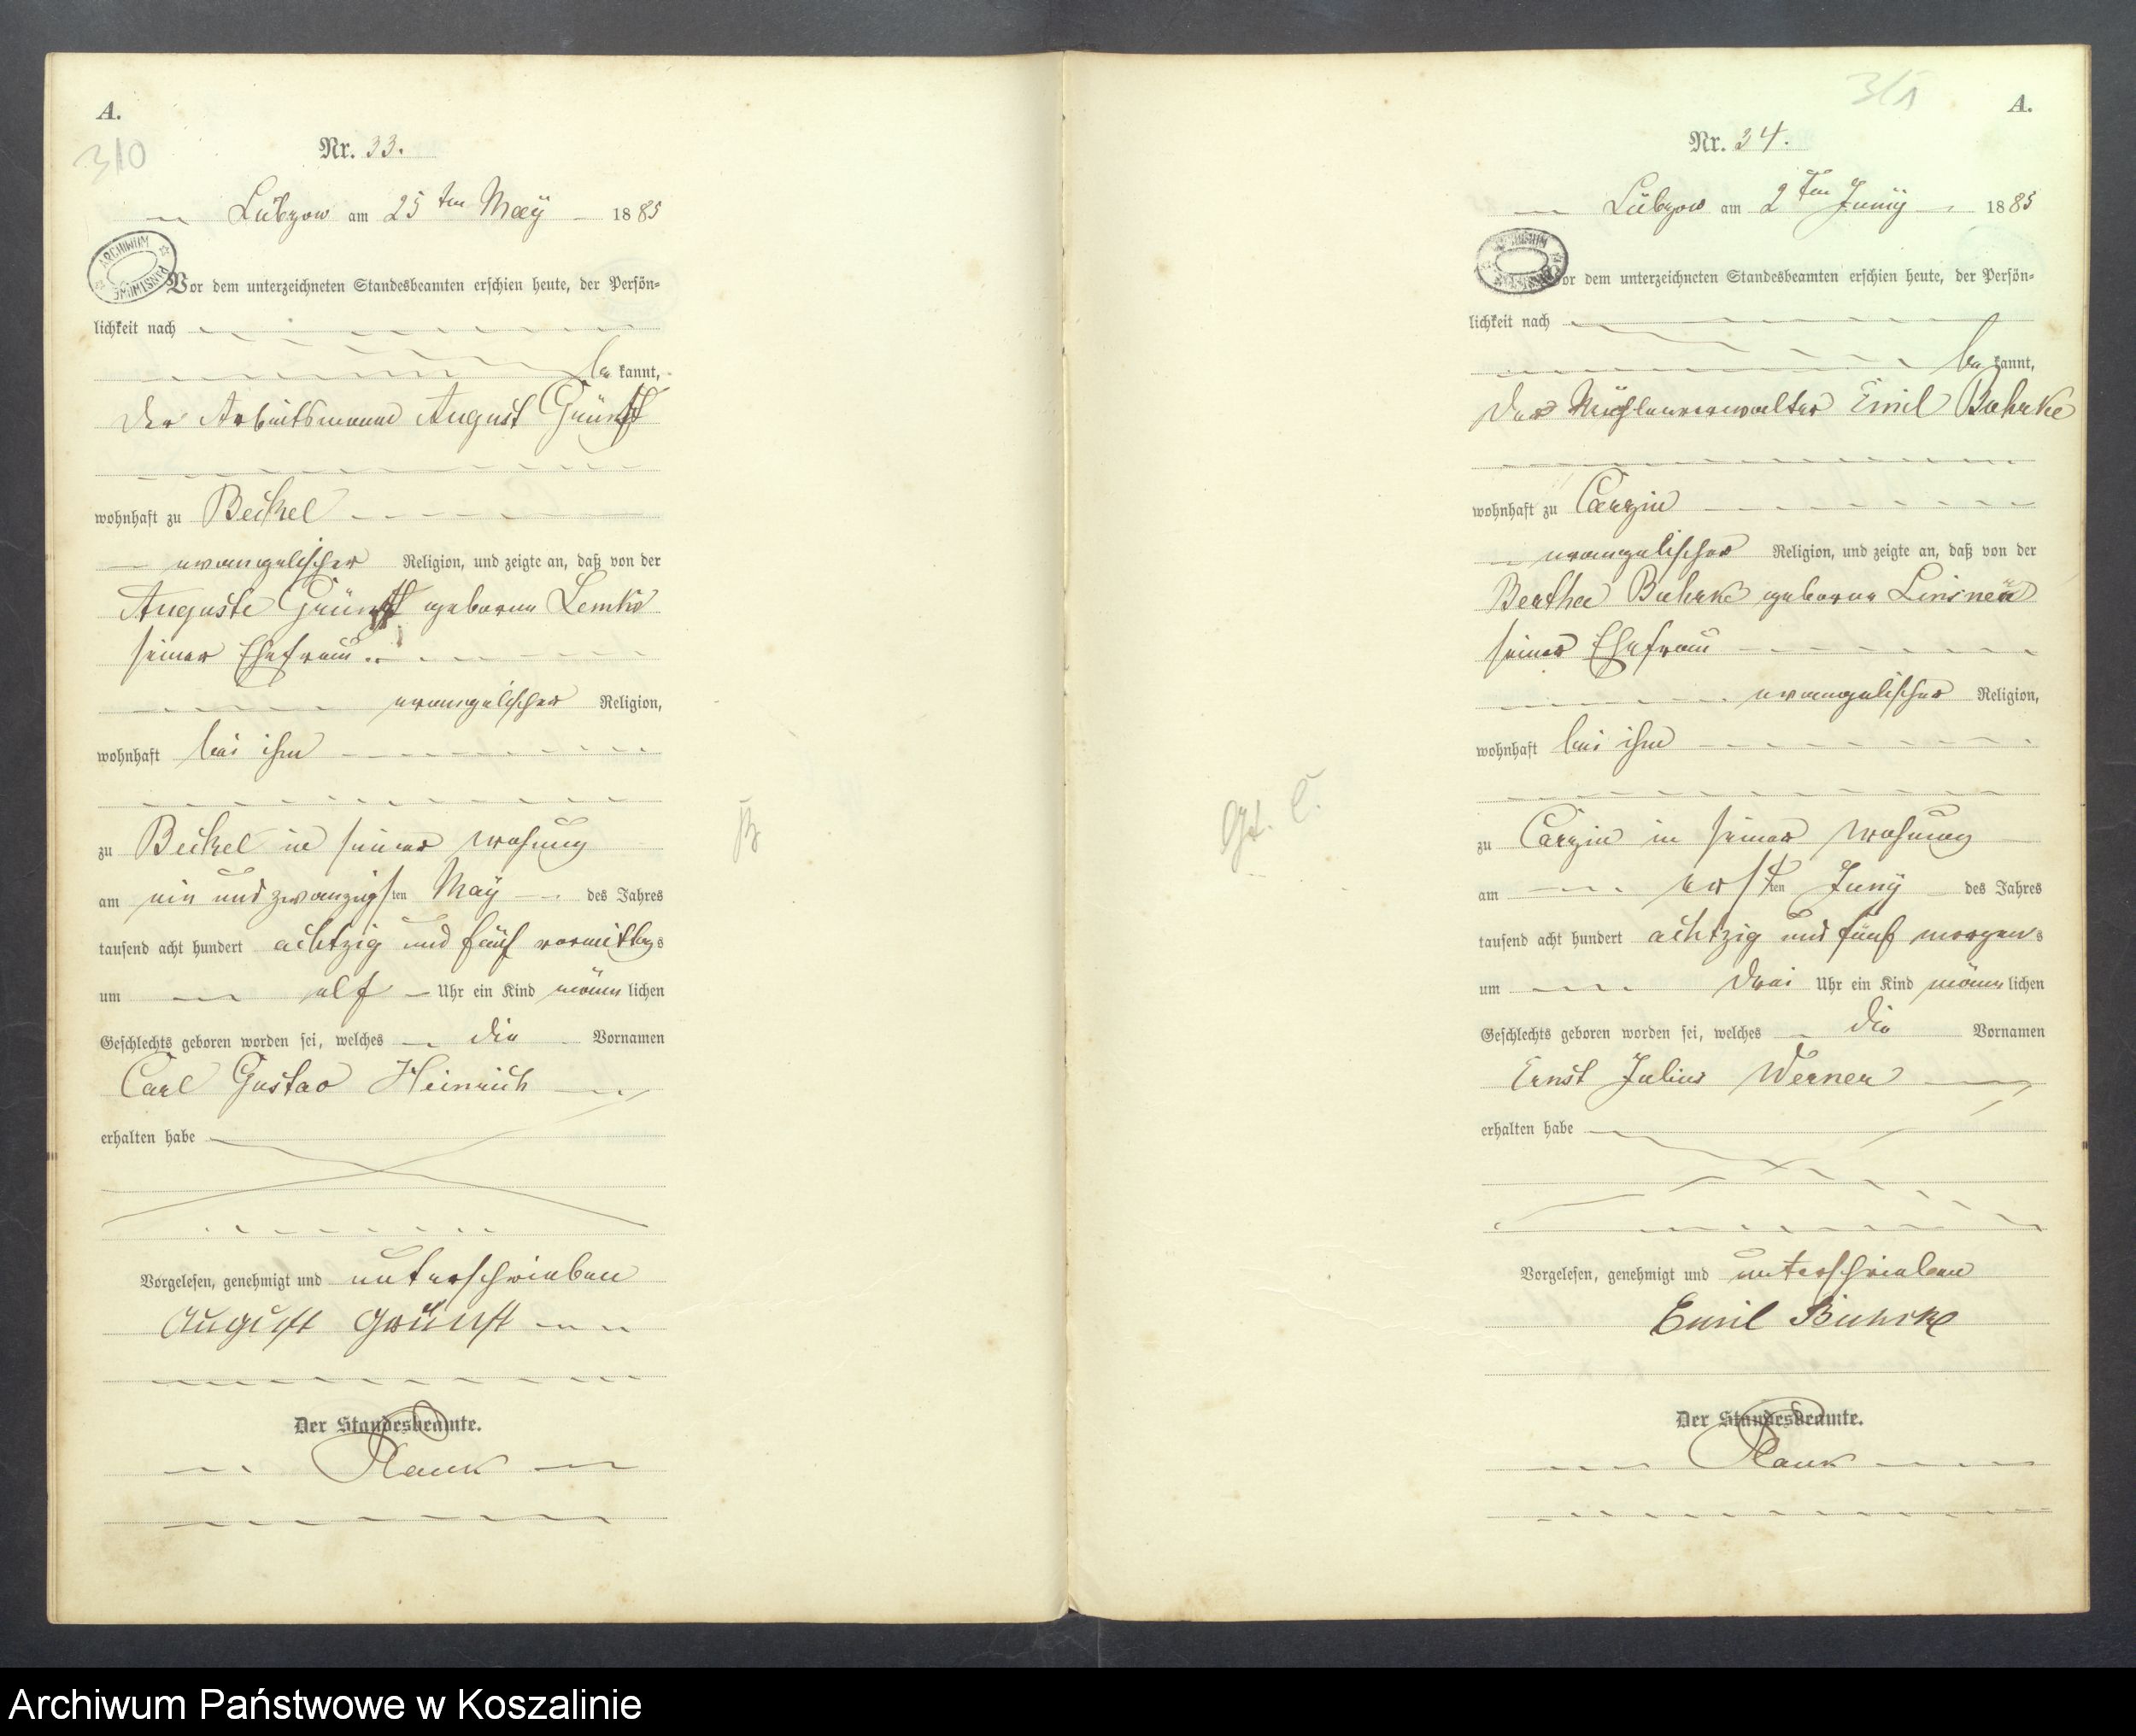 A.
310
Nr. 33.
Lübzow am 25 ten May 1885
ARCHIWUM PAŃSTWOWE
Vor dem unterzeichneten Standesbeamten erschien heute, der Persön-
lichkeit nach
be kannt,
der Arbeitsmann August Grünst
wohnhaft zu Beckel
evangelischer Religion, und zeigte an, daß von der
Auguste Grünst geborne Lemke
seiner Ehefrau
evangelischer Religion,
wohnhaft bei ihm
zu Beckel in seiner Wohung
am ein und zwanzigsten May des Jahres
tausend acht hundert achtzig und fünf vormittags
um elf Uhr ein Kind männlichen
Geschlechts geboren worden sei, welches die Vornamen
Carl Gustav Heinrich
erhalten habe
Vorgelesen, genehmigt und unterschrieben
August Grünst
Der Standesbeamte.
Plank
311
A.
Nr. 34.
Lübzow am 2 ten Juny 1885
Vor dem unterzeichneten Standesbeamten erschien heute, der Persön-
lichkeit nach
be kannt,
der Mühlenverwalter Emil Buhrke
wohnhaft zu Carzin
evangelischer Religion, und zeigte an, daß von der
Bertha Buhrke geborne
seiner Ehefrau
evangelischer Religion,
wohnhaft bei ihm
zu Carzin in seiner Wohung
am ersten Juny des Jahres
tausend acht hundert achtzig und fünf morgens
um drei Uhr ein Kind männlichen
Geschlechts geboren worden sei, welches die Vornamen
Ernst Julius Werner
erhalten habe
Vorgelesen, genehmigt und unterschrieben
Emil Buhrke
Der Standesbeamte.
Plank
Archiwum Państwowe w Koszalinie